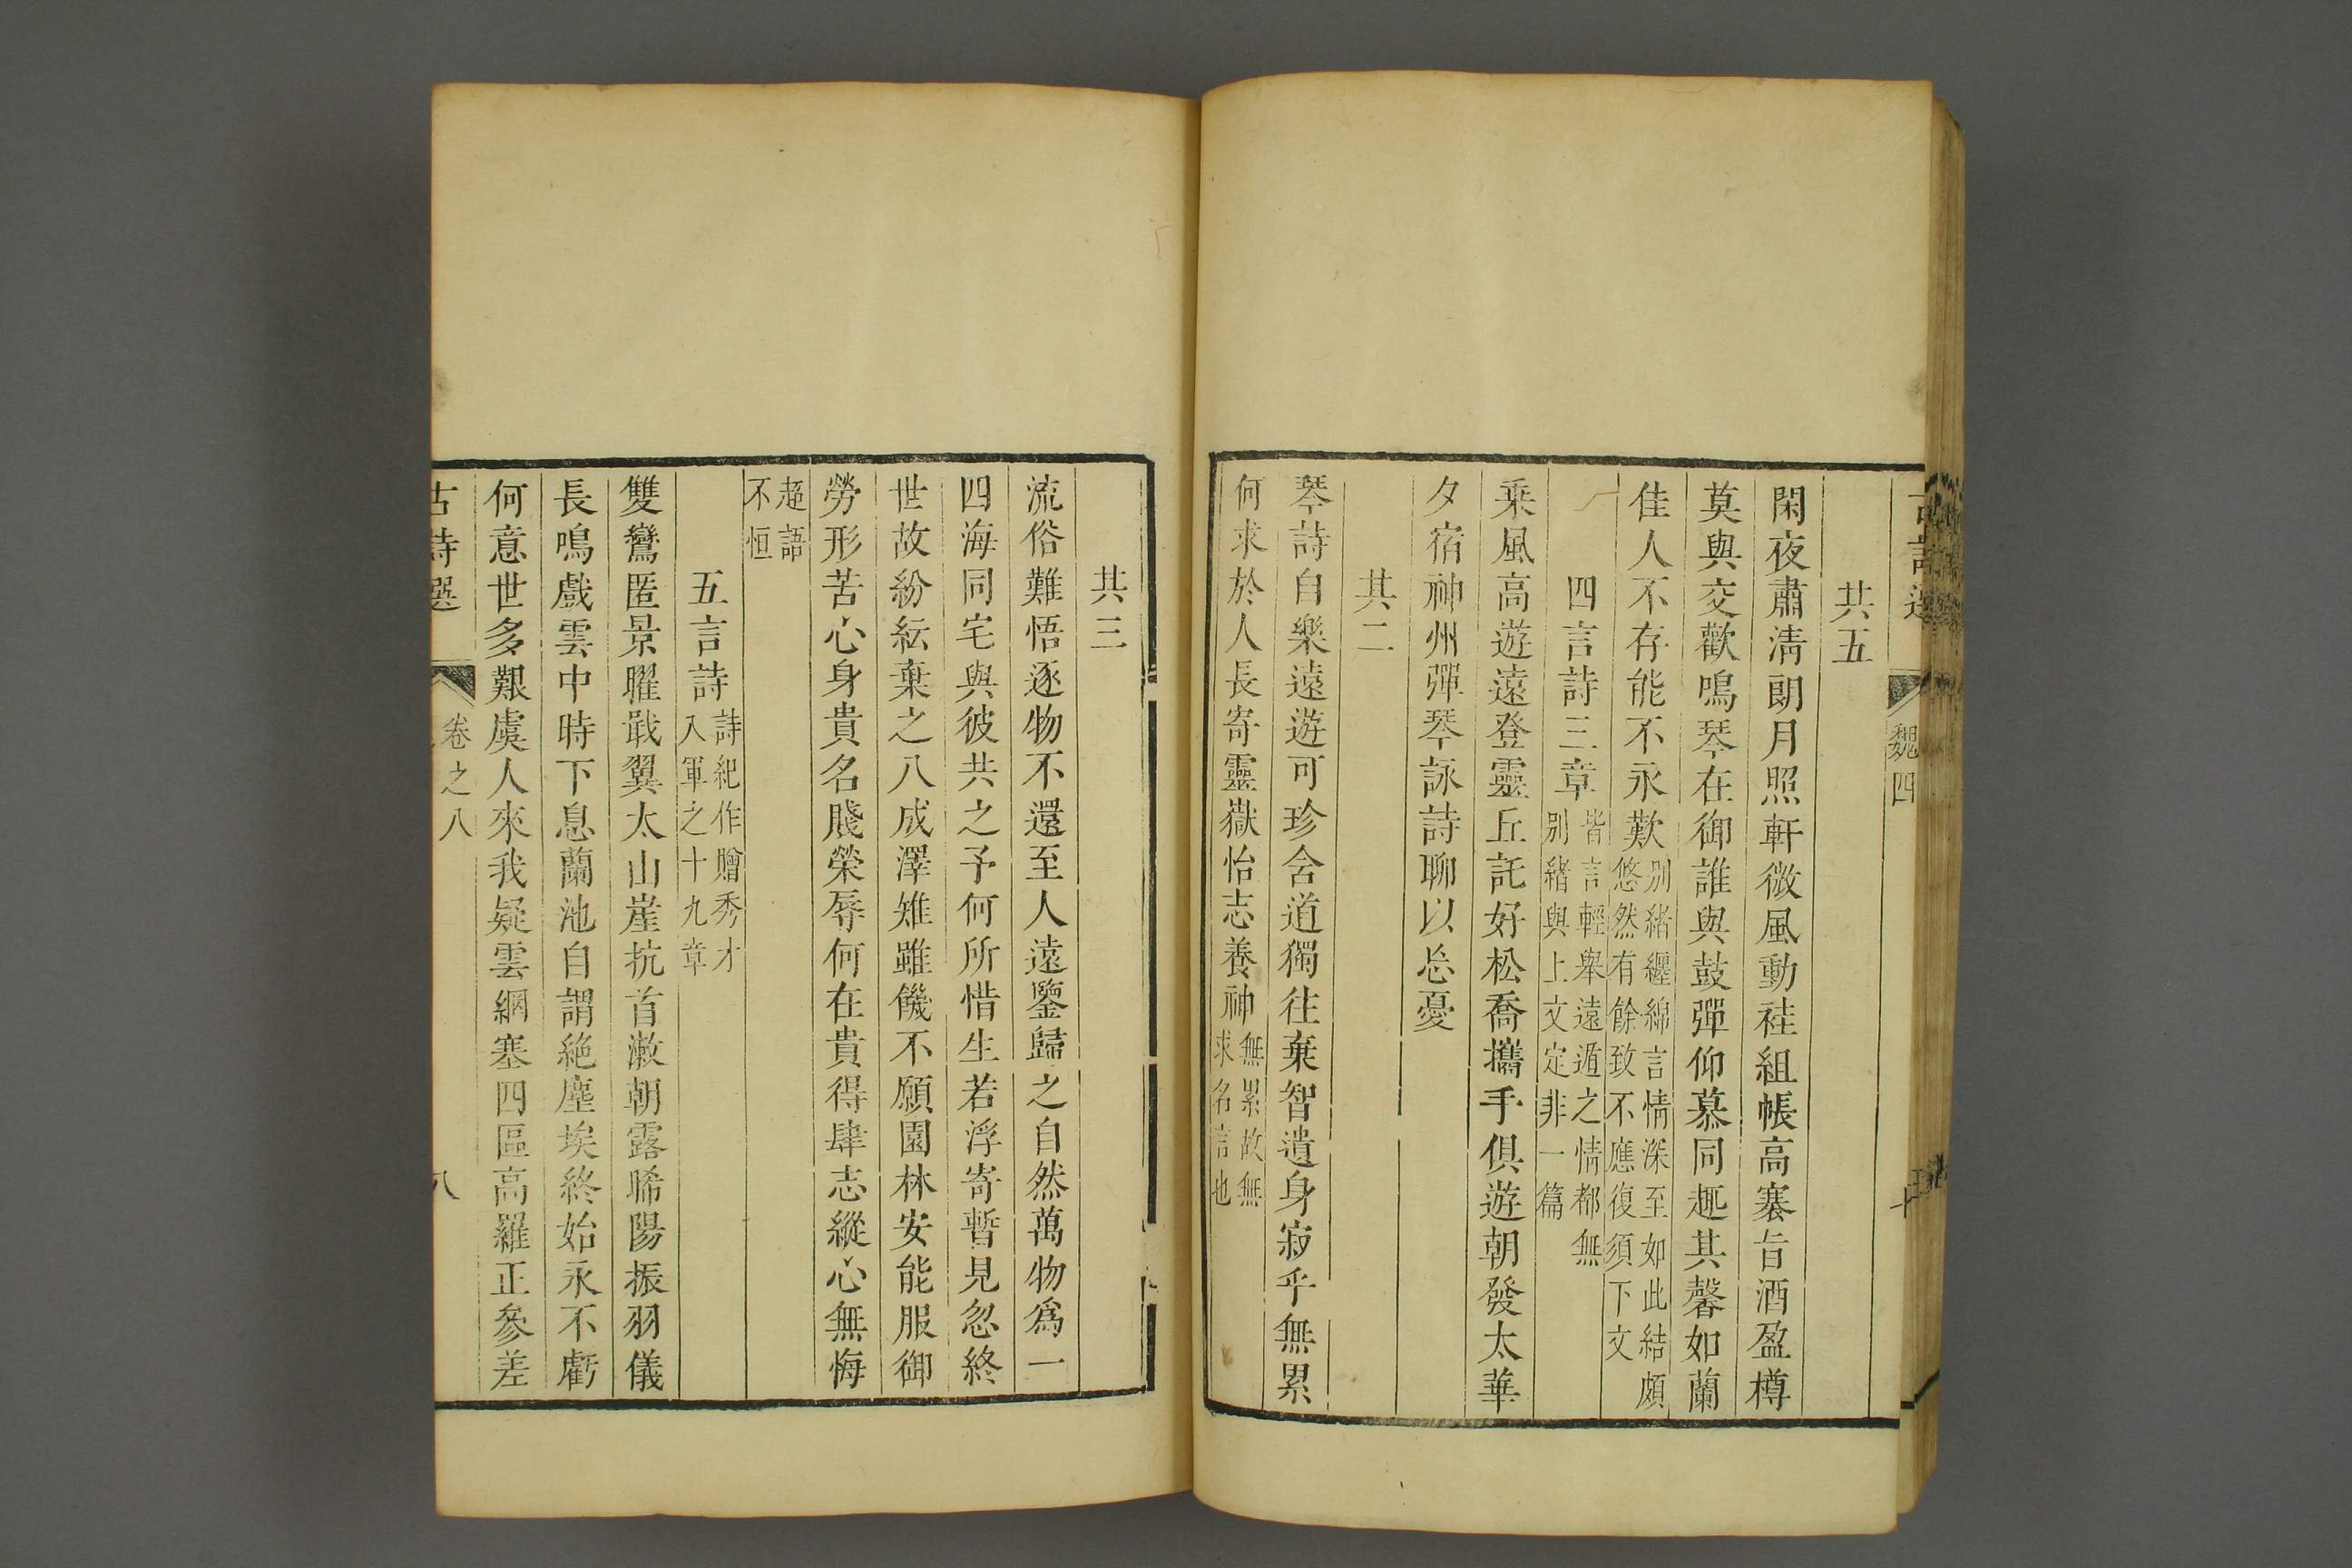 古詩選 魏四
其五
閑夜肅淸朗月照軒微風動袿組帳高褰旨酒盈樽
莫與交歡鳴琴在御誰與鼓彈仰慕同趣其馨如蘭
佳人不存能不永歎別緒纏綿言情深至如此結頗
悠然有餘致不應復須下文
四言詩三章皆言輕舉遠遁之情都無
別緒與上文定非一篇
乘風高遊遠登靈丘託好松喬攜手俱遊朝發太華
夕宿神州彈琴詠詩聊以忘憂
其二
琴詩自樂遠遊可珍含道獨往棄智遺身寂乎無累
何求於人長寄靈嶽怡志養神無累故無
求名言也
其三
流俗難悟逐物不還至人遠鑒歸之自然萬物爲一
四海同宅與彼共之予何所惜生若浮寄暫見忽終
世故紛紜棄之八成澤雉雖饑不願園林安能服御
勞形苦心身貴名賤榮辱何在貴得肆志縱心無悔
超語
不恒
五言詩詩紀作贈秀才
入軍之十九章
雙鸞匿景曜戢翼太山崖抗首漱朝露晞陽振羽儀
長鳴戲雲中時下息蘭池自謂絶塵埃終始永不虧
何意世多艱虞人來我疑雲網塞四區高羅正參差
古詩選 卷之八 八